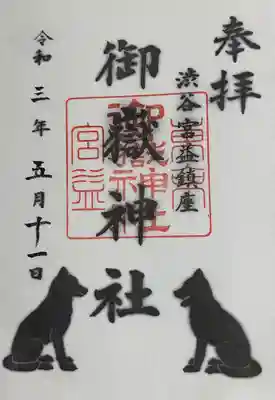 奉拝
渋谷宮益鎮座
御嶽神社
令和三年五月十一日
宮益
御嶽神社